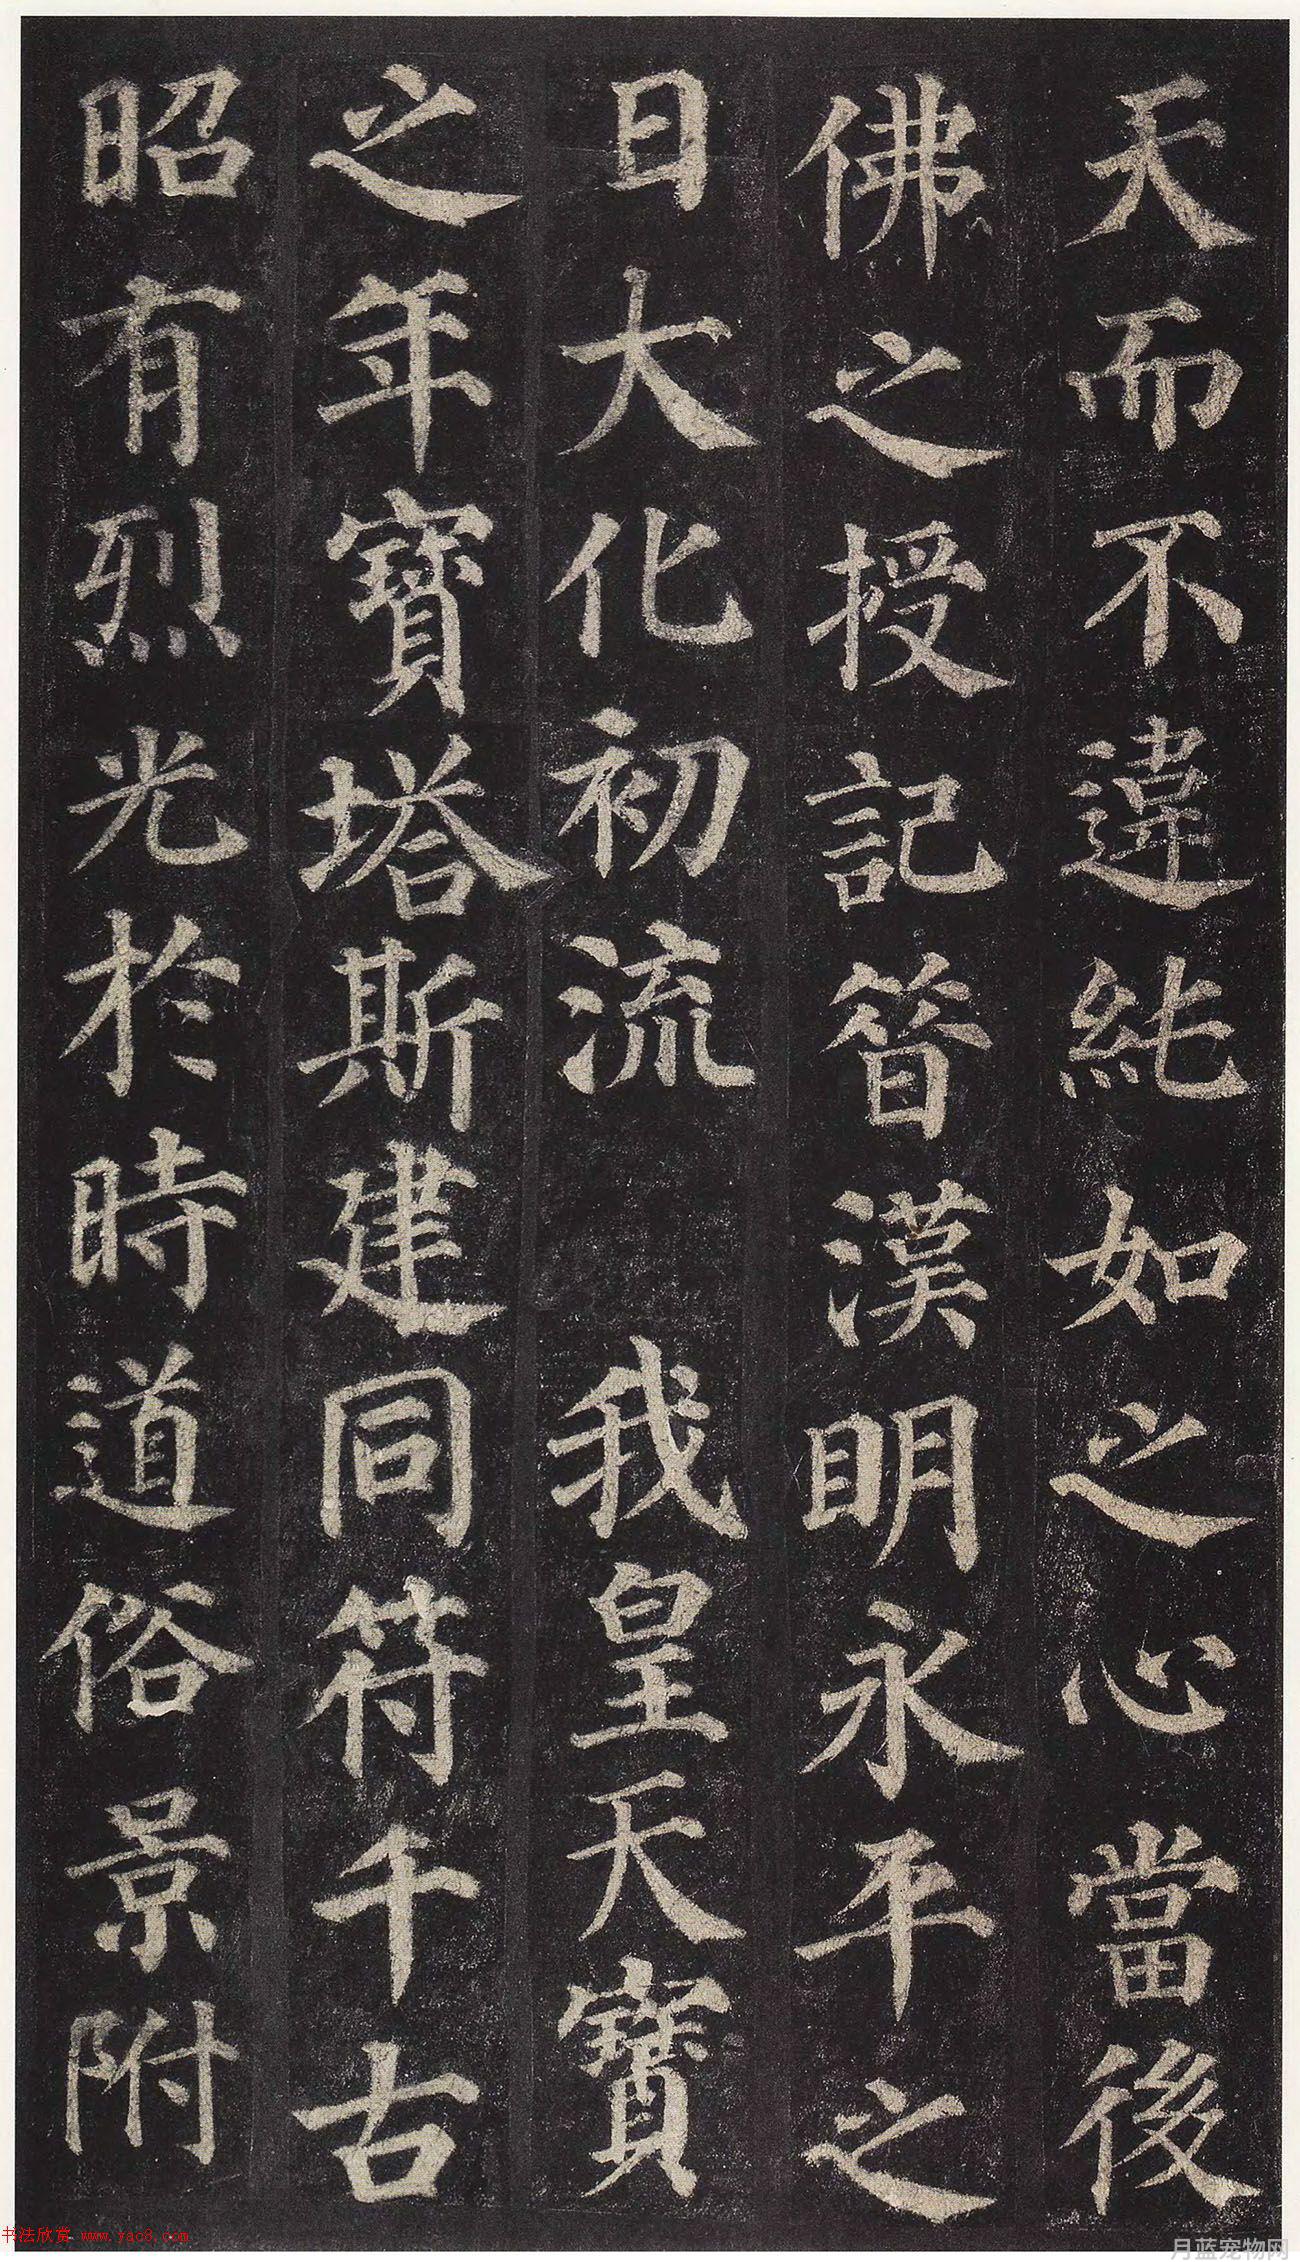 天而不違純如之心當後
佛之授記昔漢明永平之
日大化初流 我皇天寶
之年寶塔斯建同符千古
昭有烈光於時道俗景附
书法欣赏 www.yac8.com
月蓝宠物网